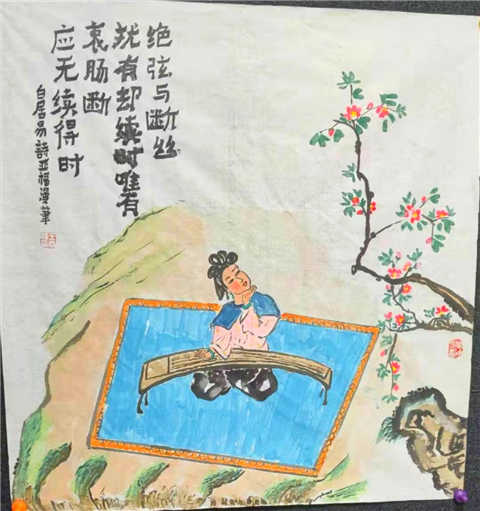 绝弦与断丝
犹有却续时唯有
衷肠断
应无续得时
白居易詩亚福漫筆